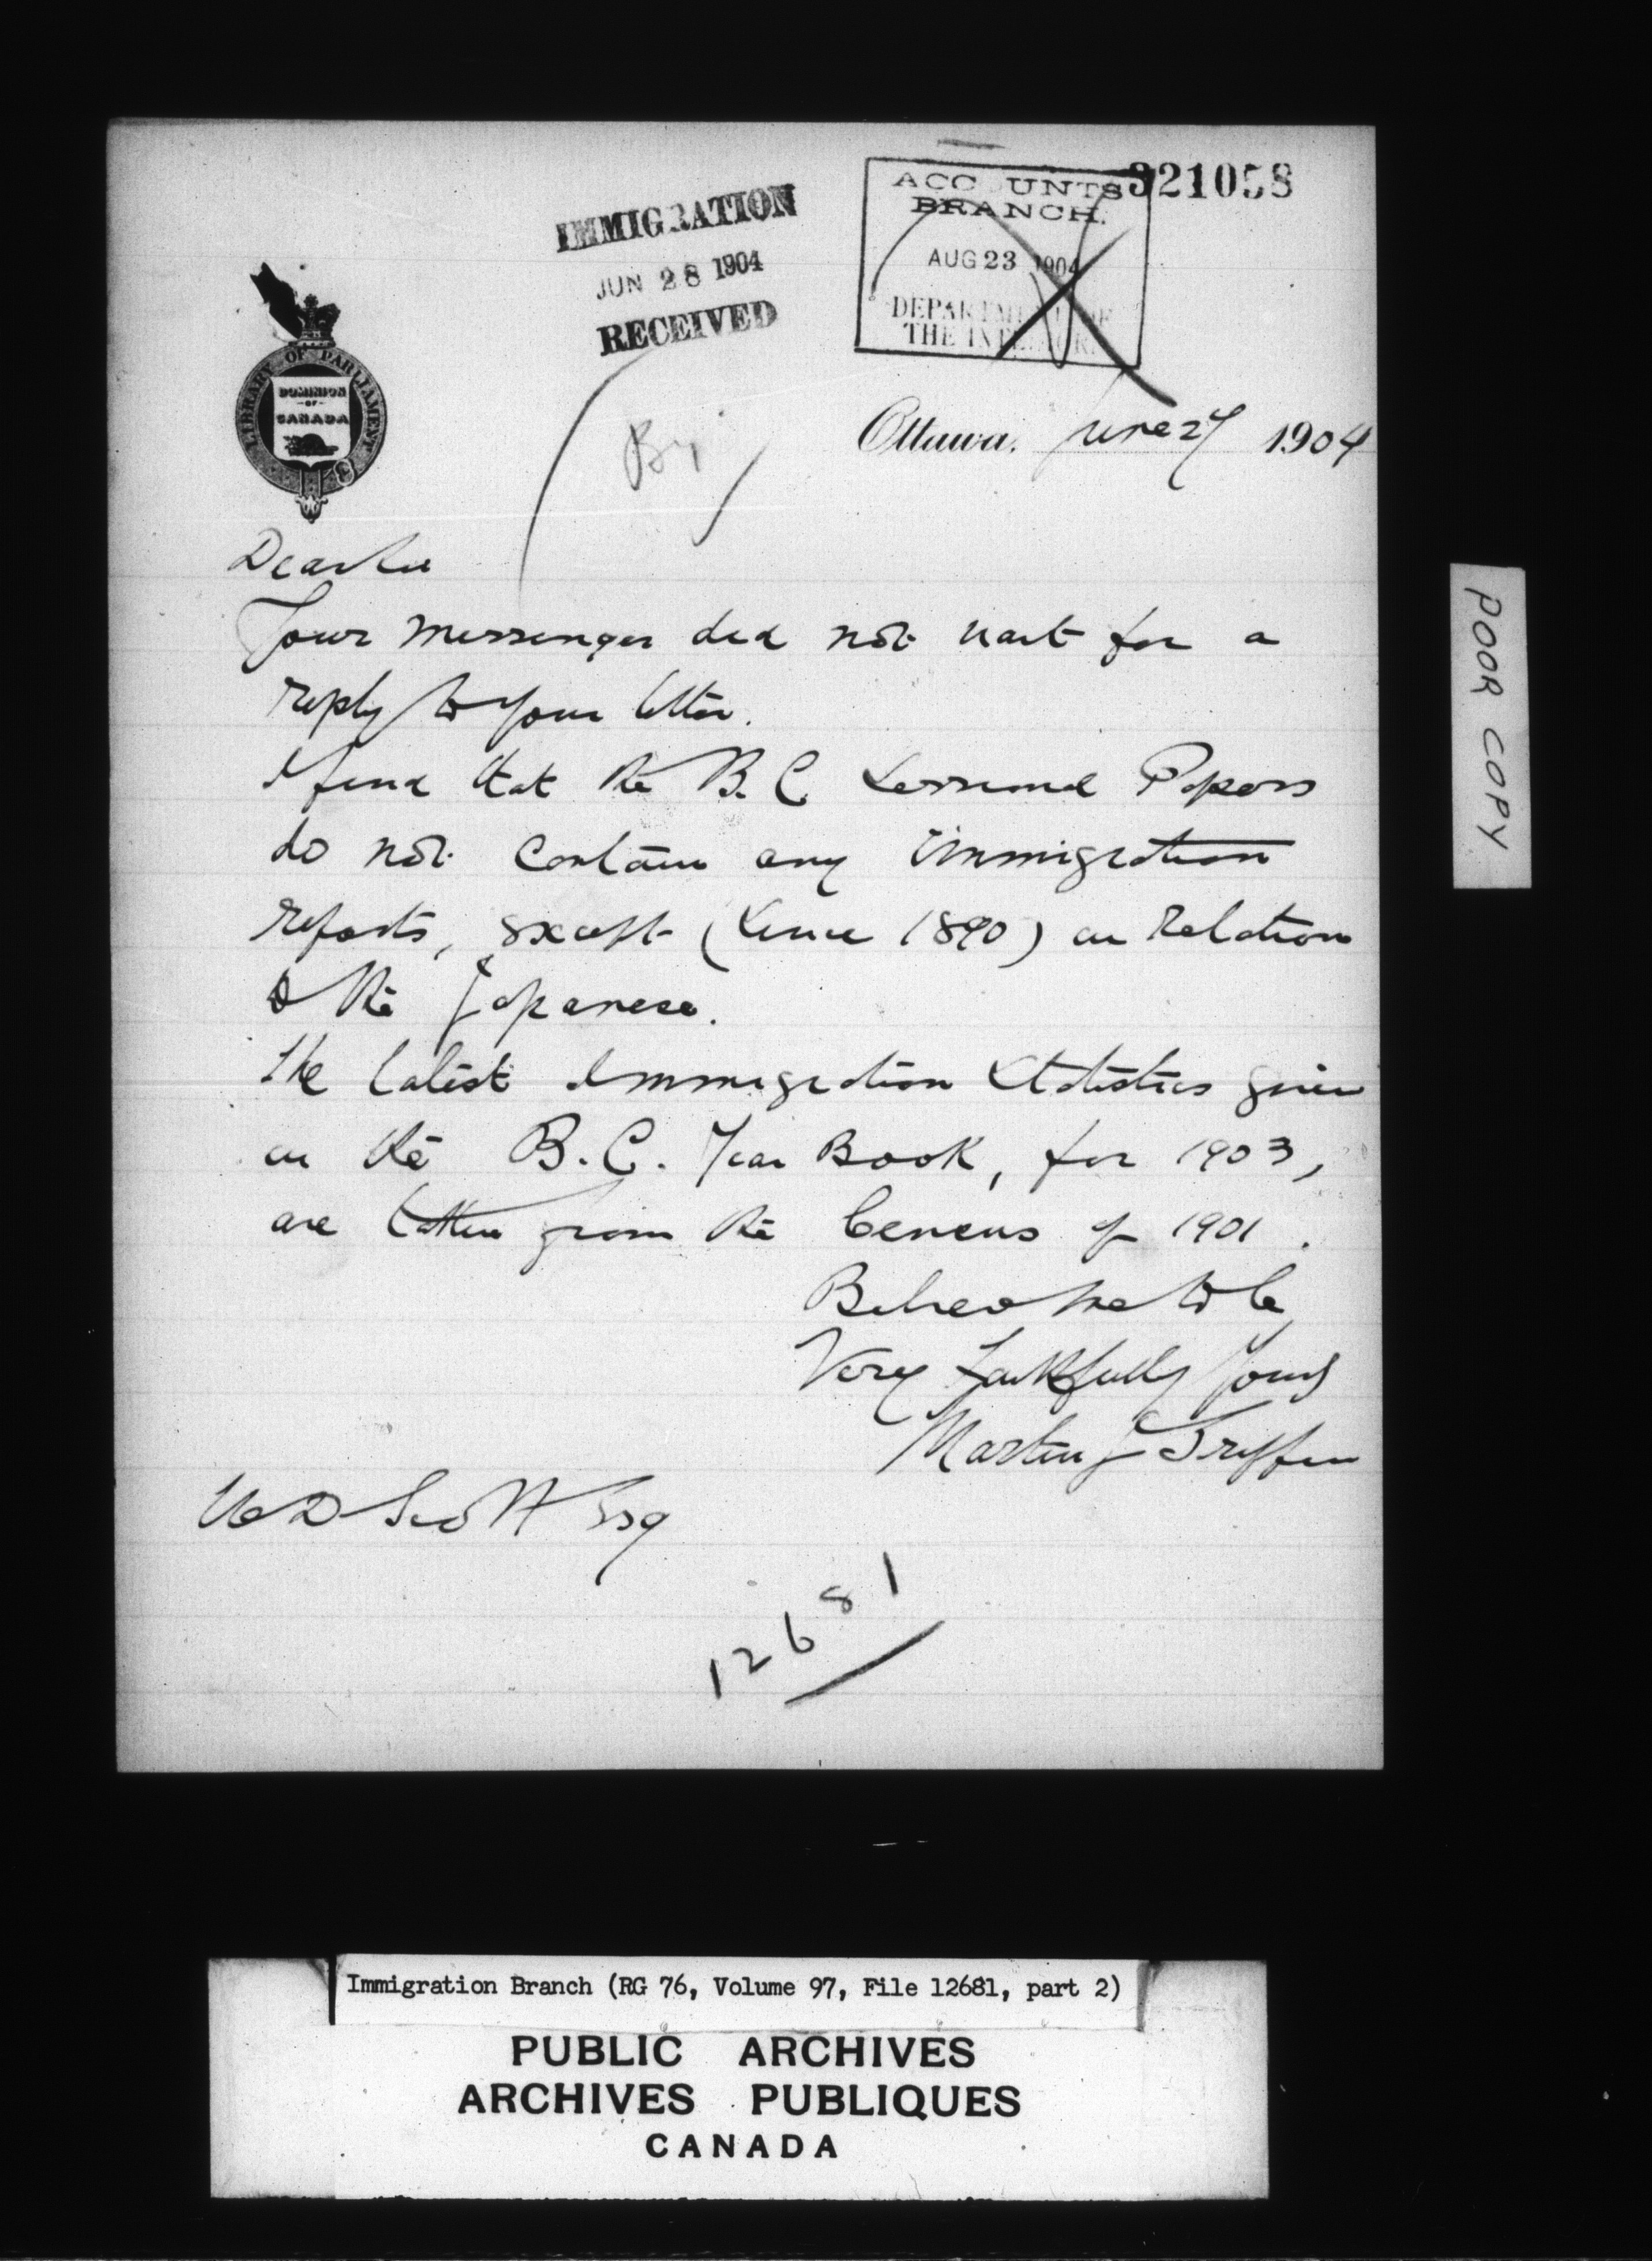 321058
ACC UNTS
BRANCH.
AUG 23 1904
DEPARTM OF
THE INTE OR.
IMMIGRATION
JUN 28 1904
RECEIVED
LIBRARY OF PARLIAMENT
DOMINION
OF
CANADA
Ottawa. June 27 1904
Dear Sir
Your messenger did not wait for a
reply to your letter.
I find that the B.C. Sessional Papers
do not contain any immigration
reports, except (since 1890) in relation
to the Japanese.
The latest Immigration Statistics given
in the B.C. Year Book, for 1903,
are taken from the Census of 1901.
Believe me to be
Very faithfully yours
Martin J Griffin
W D Scott Esq
12681
POOR COPY
Immigration Branch (RG 76, Volume 97, File 12681, part 2)
PUBLIC ARCHIVES
ARCHIVES PUBLIQUES
CANADA